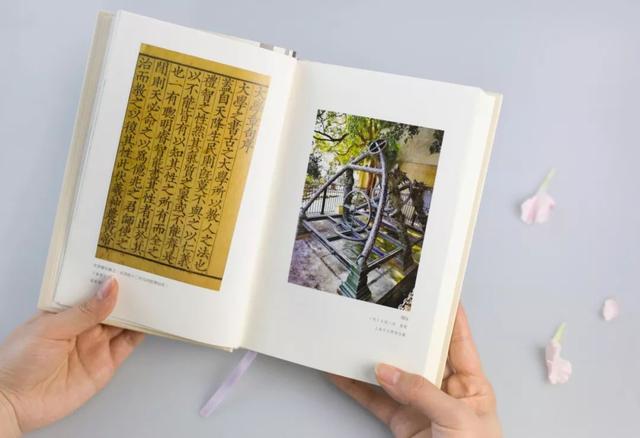 大學章句序
大學之書古之大學所以教人之法也
蓋自天降生民則既莫不與之以仁義
禮智之性矣然其氣質之稟或不能齊是
以不能皆有以知其性之所有而全之
也一有聰明睿智能盡其性者出於其
閒則天必命之以爲億兆之君師使之
治而教之以復其性此伏羲神農黃帝